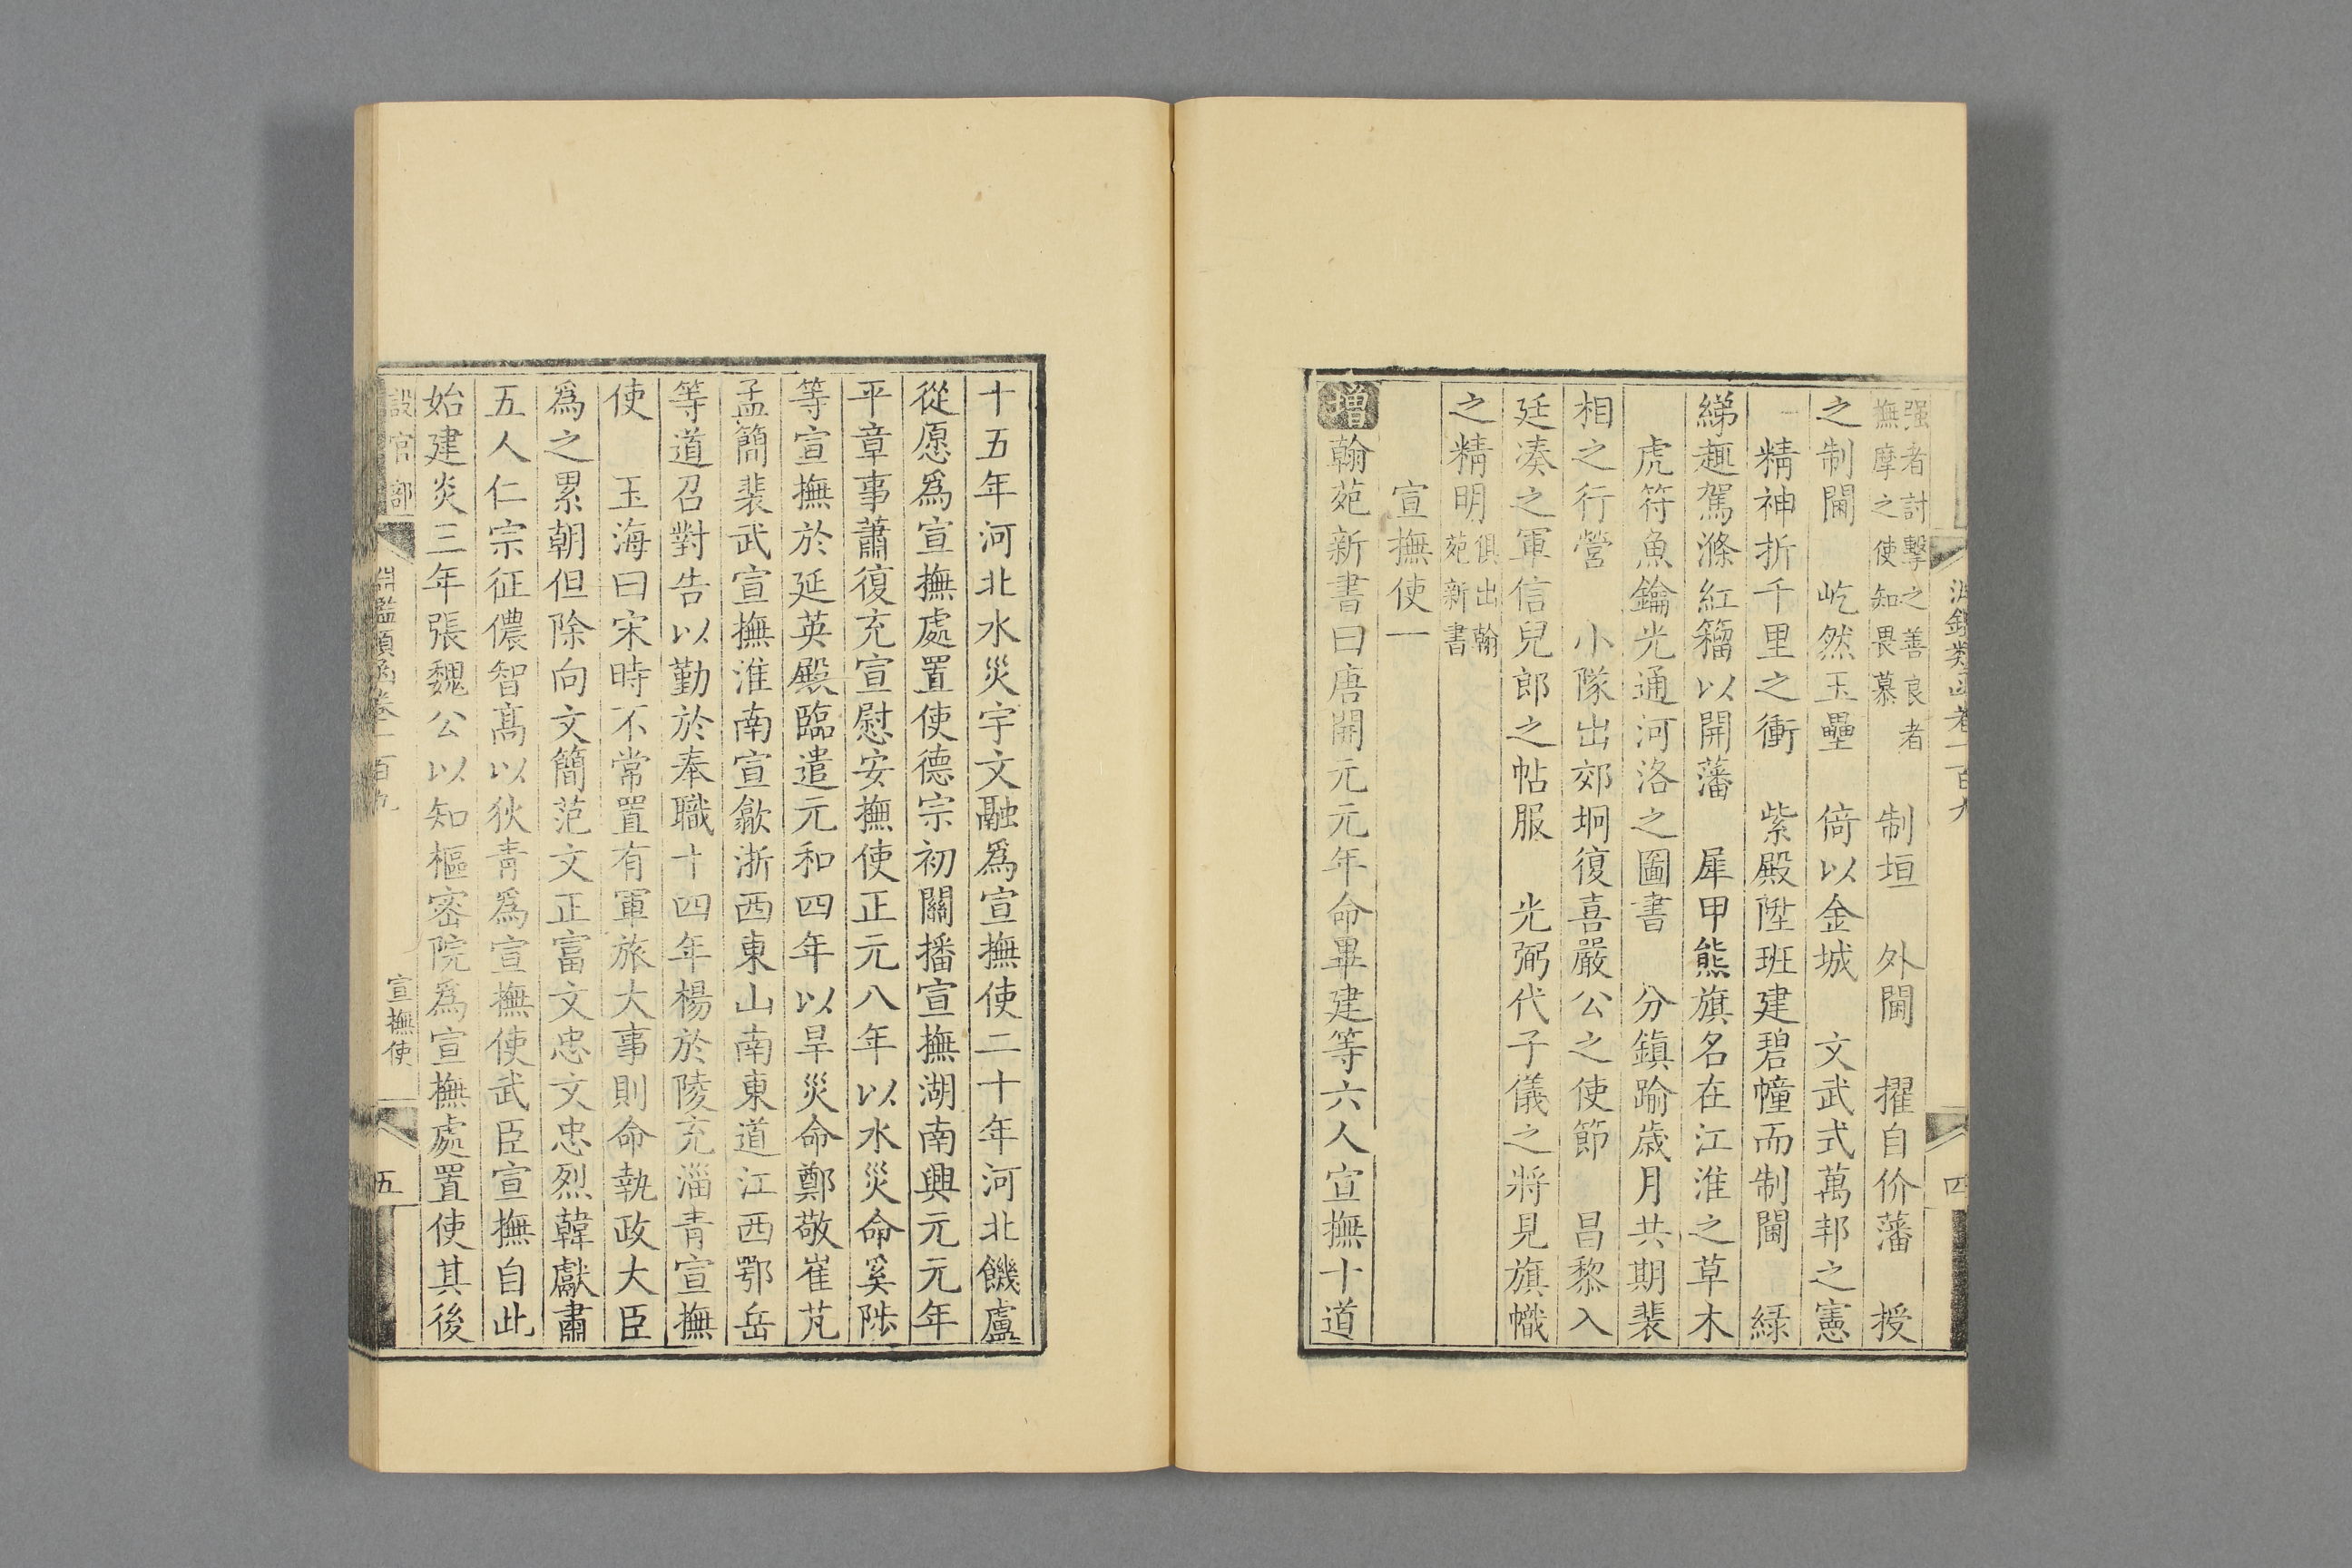 淵鑑類函卷一百九
四
强者討擊之善良者
撫摩之使知畏慕
制垣　外閫　擢自价藩　授
之制閫　屹然玉壘　倚以金城　文武式萬邦之憲
精神折千里之衝　紫殿陞班建碧幢而制閫　緑
綈趣駕滌紅籀以開藩　犀甲熊旗名在江淮之草木
虎符魚鑰光通河洛之圖書　分鎮踰歳月共期裴
相之行營　小隊出郊坰復喜嚴公之使節　昌黎入
廷凑之軍信兒郎之帖服　光弼代子儀之將見旗幟
之精明
俱出翰
苑新書
宣撫使一
增翰苑新書曰唐開元元年命畢建等六人宣撫十道
十五年河北水災宇文融爲宣撫使二十年河北饑盧
從愿爲宣撫處置使德宗初關播宣撫湖南興元元年
平章事蕭復充宣慰安撫使正元八年以水災命奚陟
等宣撫於延英殿臨遣元和四年以旱災命鄭敬崔芃
孟簡裴武宣撫淮南宣歙浙西東山南東道江西鄂岳
等道召對告以勤於奉職十四年楊於陵充淄青宣撫
使　玉海曰宋時不常置有軍旅大事則命執政大臣
爲之累朝但除向文簡范文正富文忠文忠烈韓獻肅
五人仁宗征儂智髙以狄青爲宣撫使武臣宣撫自此
始建炎三年張魏公以知樞密院爲宣撫處置使其後
設官部
淵鑑類函卷一百九
宣撫使
五